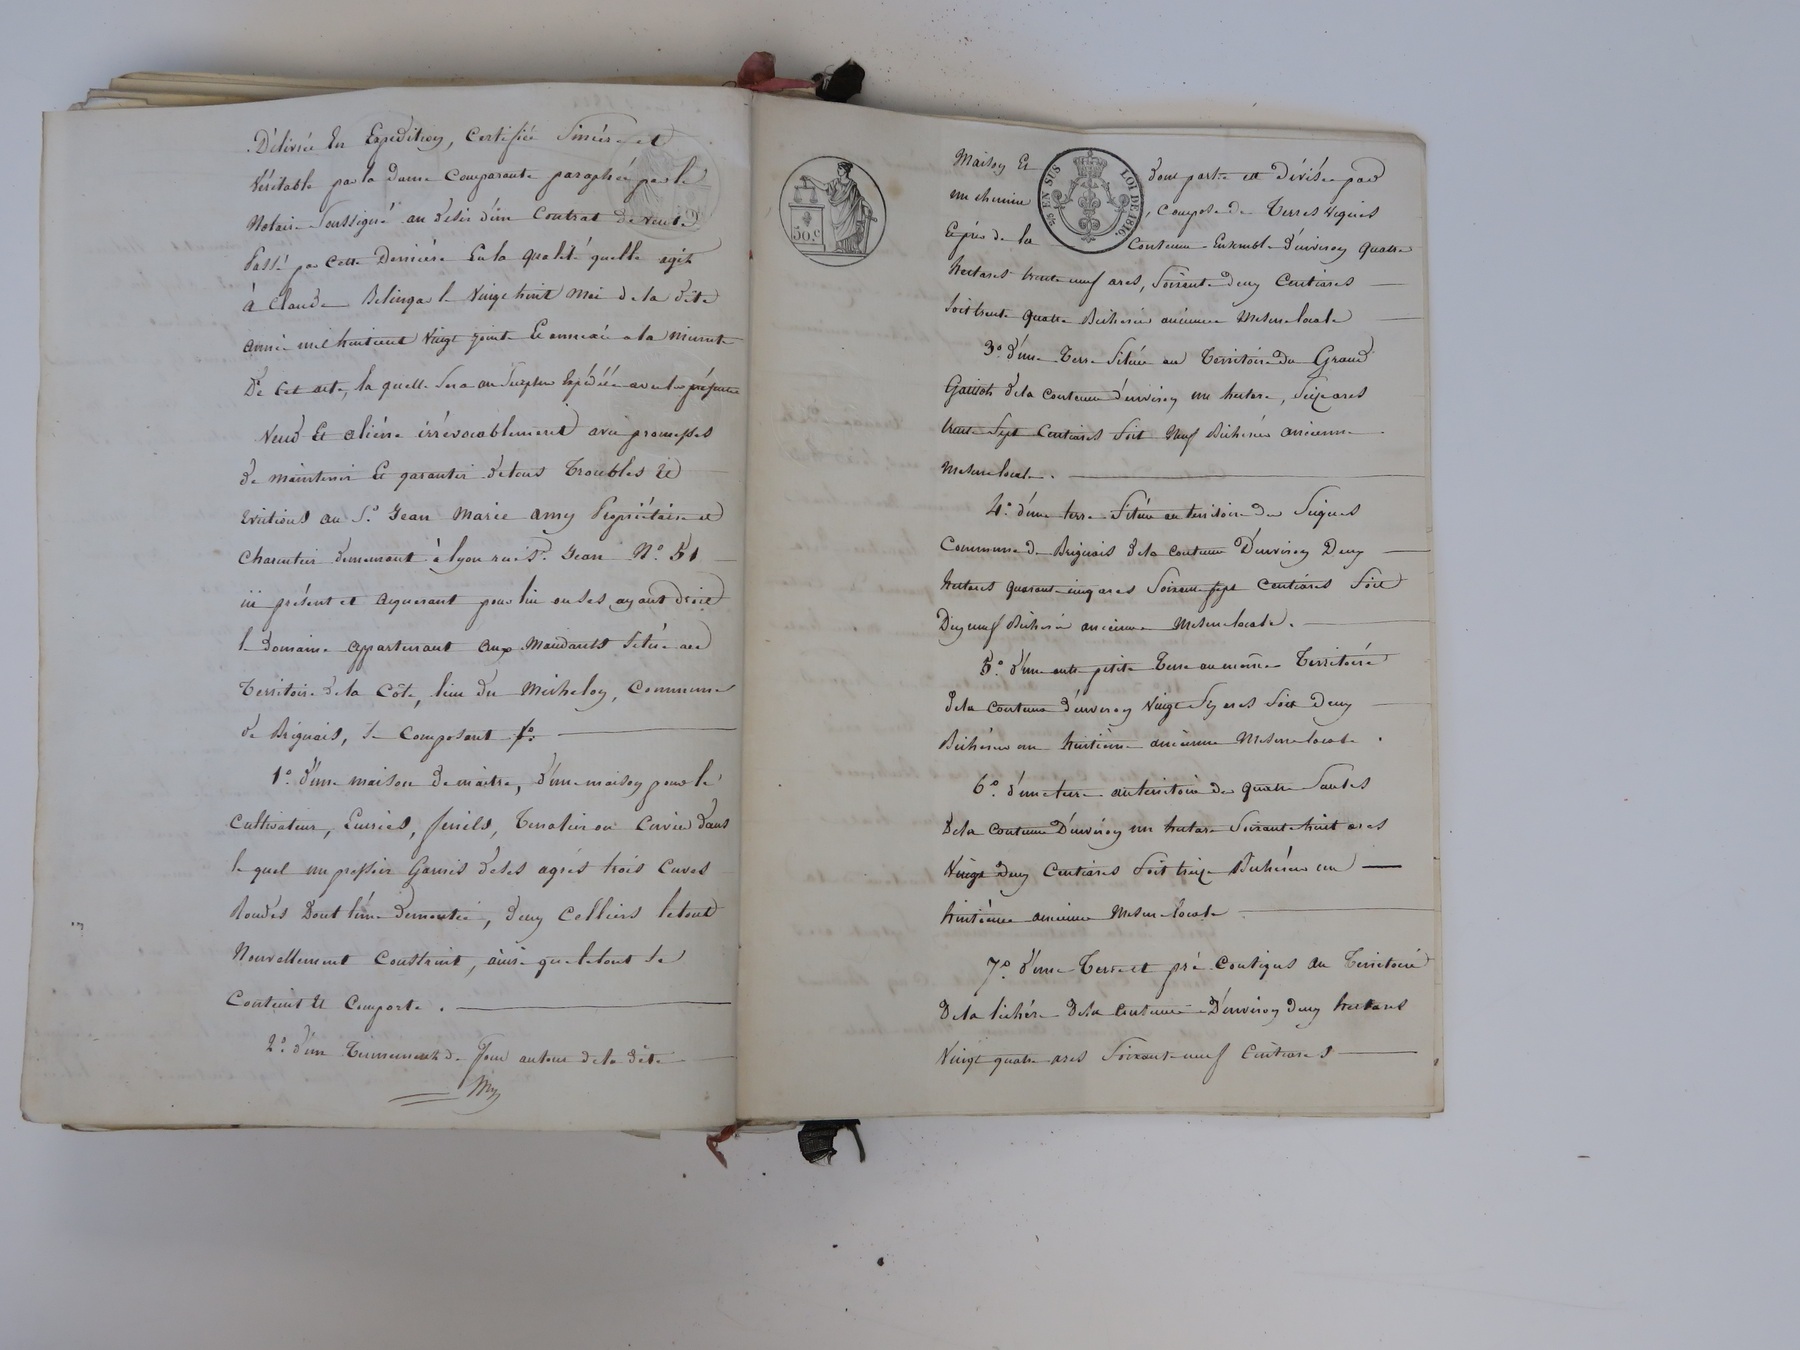 Délivrée En Expedition, Certifiée Sincère et
véritable par la dame Comparante paraphée par le
Notaire Soussigné au desir d'un Contrat de vente
Passé par Cette Dernière En la qualité quelle agit
à Claude Belingar le Vingt huit Mai de la dite
année mil huit cent Vingt Et annexée a la minute
De Cet acte, la quelle Sera au Expédiée avec les présentes
Vend Et aliéne irrévocablement avec promesses
de maintenir Et garantir de tous Troubles Et
Evictions au Sr. Jean Marie amy Propriétaire et
Charcutier demeurant à lyon rue St. Jean No. 51
ici présent et acquerant pour lui ou ses ayant droit
le Domaine appartenant aux Mandants Situé au
Territoire de la Côte, lieu du Micheloy, Commune
de Brignais, Se Composant
1o. d'une maison de maître, d'une maison pour le
Cultivateur, Ecuries, fenils, Tenalier ou Cuvier dans
le quel un pressoir Garnis de ses agrés trois Cuves
Rondes Dont l'une demontée, deux Celliers le tout
Nouvellement Construit, ainsi que le tout Se
Contient Et Comporte.
2o. d'un Tennement de fond autour de la dite
50.C
EN SUS
LOI DE 1816.
Maison Et dont partie est divisée par
un chemin, Composé de Terres Vignes
Et prés de la Contenue Ensemble d'environ quatre
hectares trente neuf ares, Soixante deux Centiares
Soit trente quatre Bicherées ancienne Mesure locale
3o. d'une Terre Située au Territoire du Grand
de la Contenue d'environ un hectare, Seize ares
trente Sept Centiares Soit Neuf Bicherées ancienne
Mesure locale.
4o. d'une terre Située au territoire des
Commune de Brignais de la Contenue D'environ Deux
hectares quarante cinq ares Soixante sept Centiares Soit
Dix neuf Bicherées ancienne Mesure locale.
5o. d'une autre petite Terre au même Territoire
de la Contenue d'environ Vingt Six ares Soit Deux
Bicherées un huitième ancienne Mesure locale.
6o. d'une terre au territoire des quatre Saules
De la Contenue D'environ un hectare Soixante huit ares
Vingt deux Centiares Soit treize Bicherées un
huitième ancienne Mesure locale
7o. d'une Terre et pré Contigus au Territoire
De la lichère De la Contenue D'environ deux hectares
Vingt quatre ares Soixante neuf Centiares